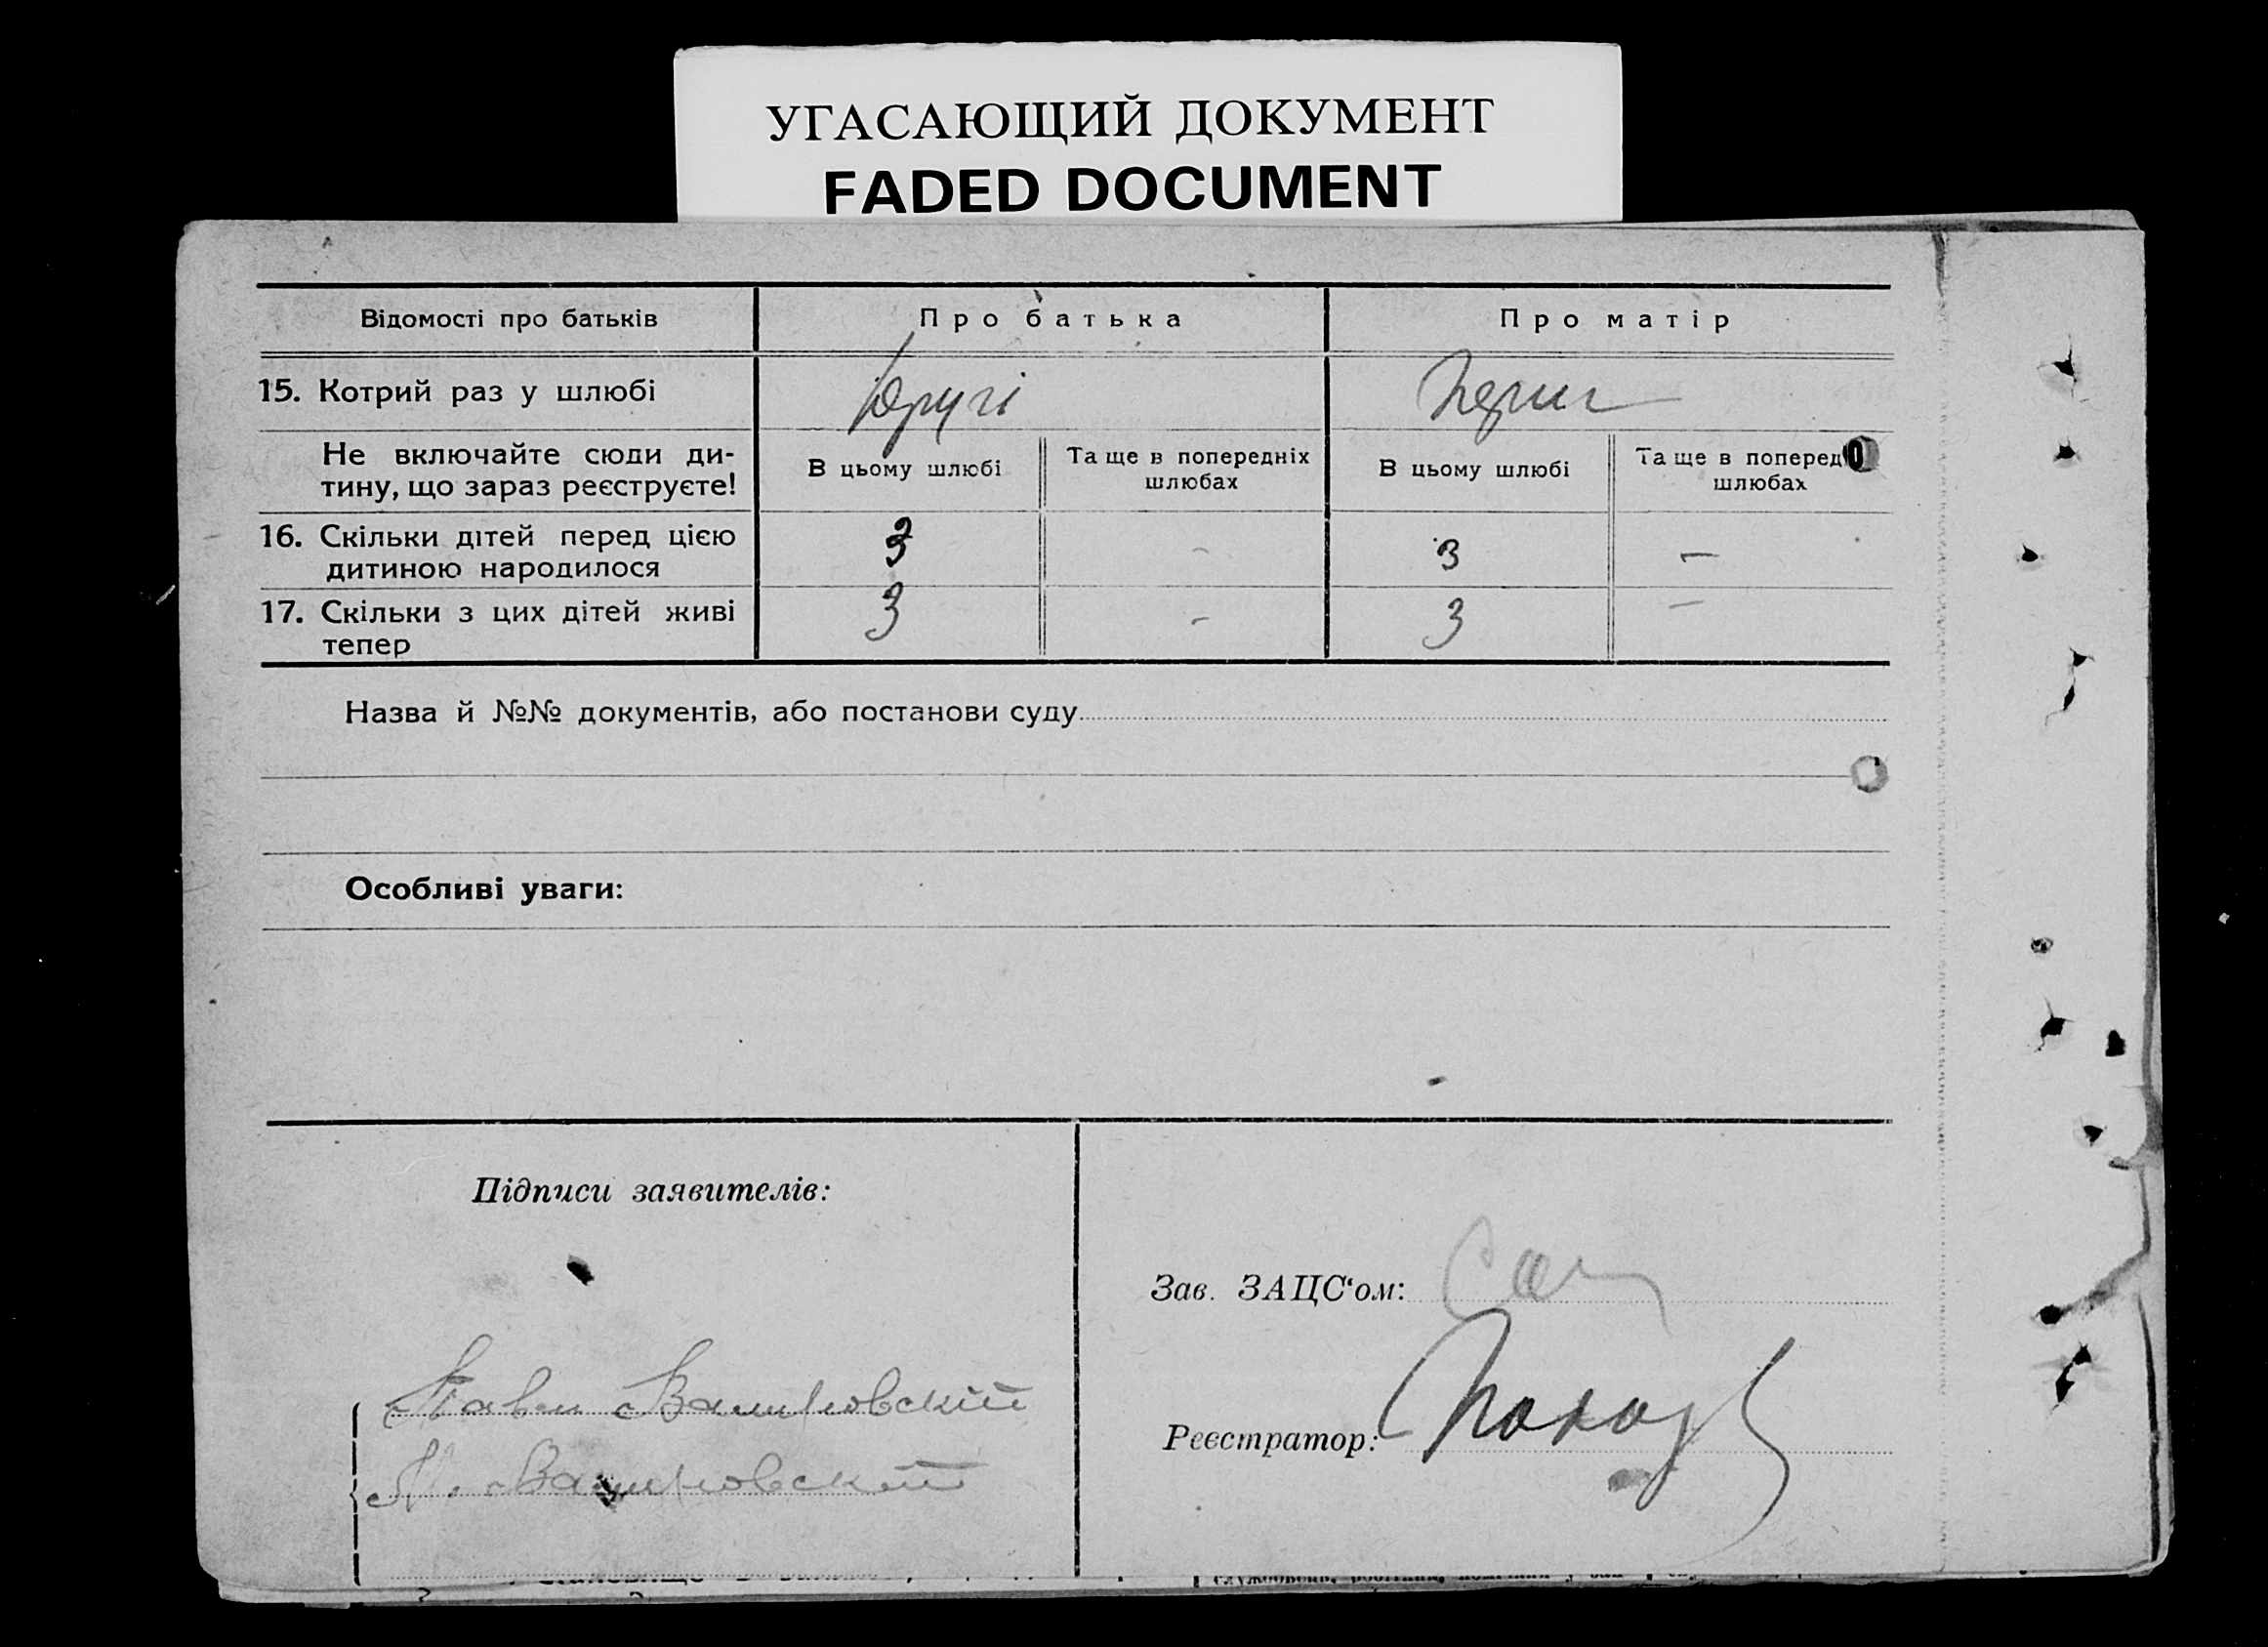 УГАСАЮЩИЙ ДОКУМЕНТ
FADED DOCUMENT
Відомості про батьків
Про батька
Про матір
15. Котрий раз у шлюбі
другі
перш
Не включайте сюди ди-
тину, що зараз реєструєте!
В цьому шлюбі
Та ще в попередніх
шлюбах
В цьому шлюбі
Та ще в поперед
шлюбах
16. Скільки дітей перед цією
дитиною народилося
3
-
3
-
17. Скільки з цих дітей живі
тепер
3
-
3
-
Назва й №№ документів, або постанови суду
Особливі уваги:
Підписи заявителів:
Зав. ЗАЦС‘ом:
Реєстратор: